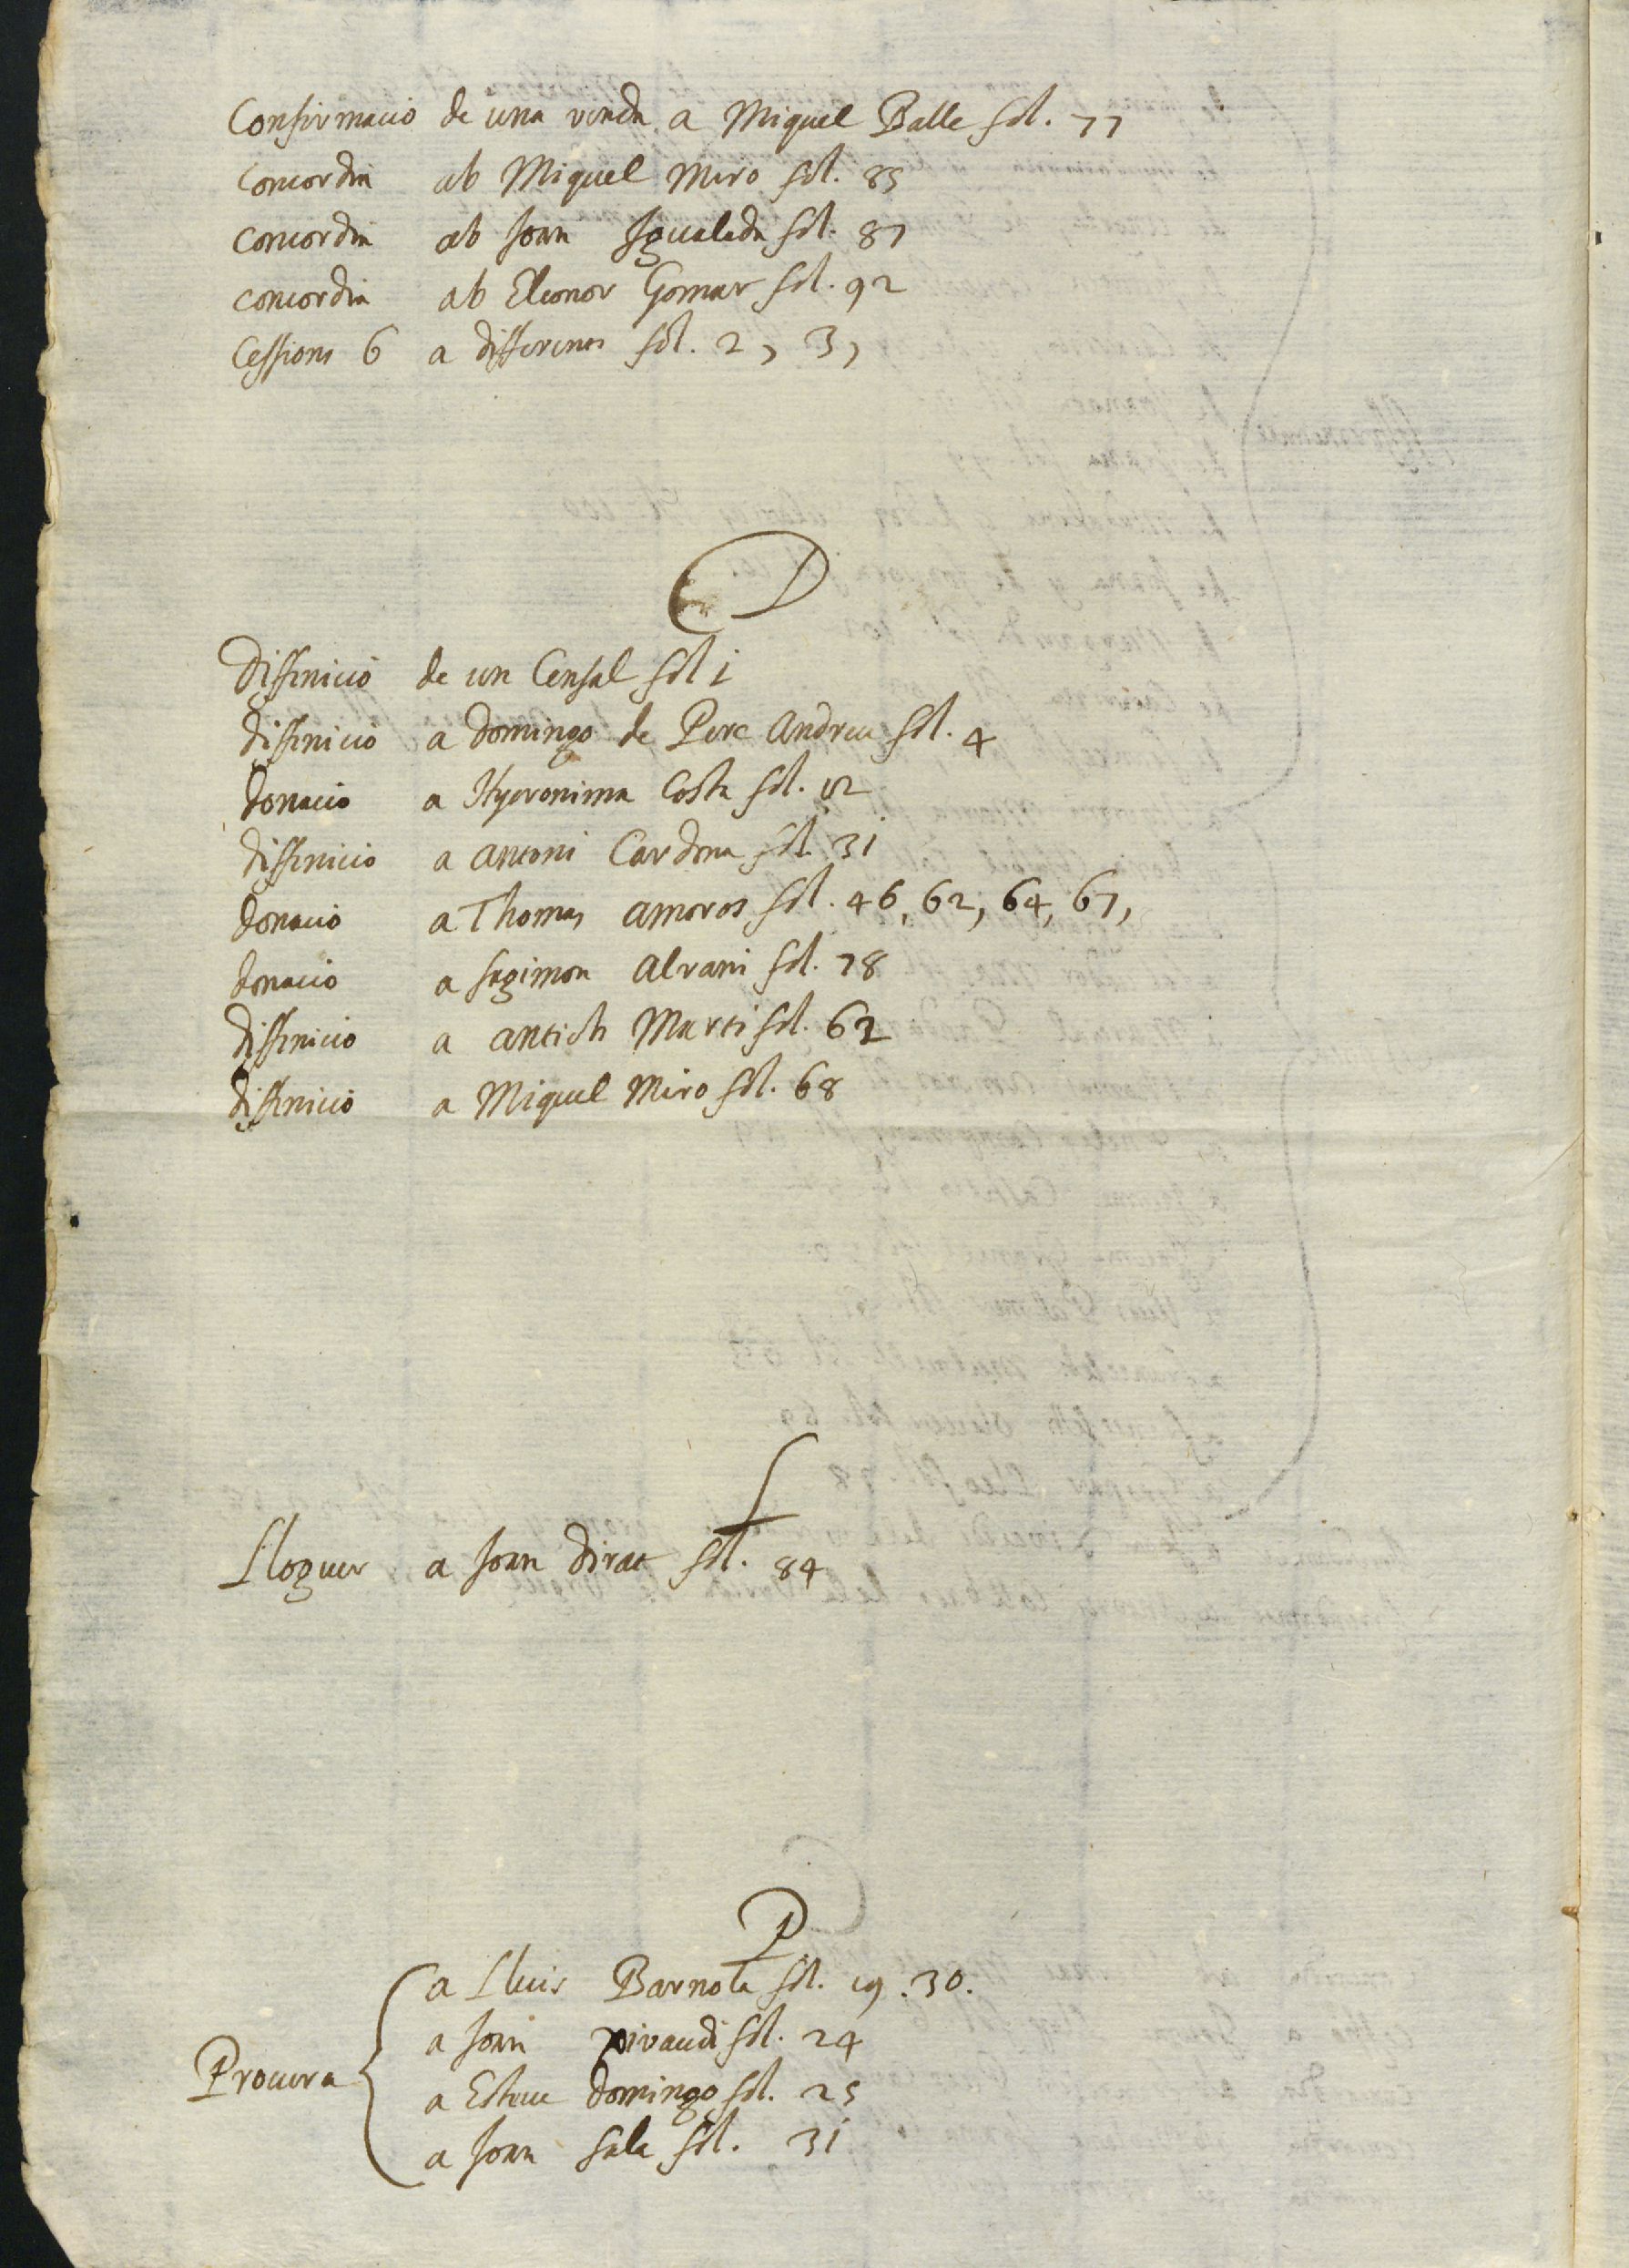 Confirmacio de una venda a Miquel Balle fol. 77
Concordia ab Miquel Miro fol. 85
concordia ab Joan Igualada fol. 87
concordia ab Eleonor Gomar fol. 92
Cessions 6 a differents fol. 2, 3,
D
Diffinicio de un Censal fol 1
diffinicio a domingo de Pere Andreu fol. 4
donacio a Hyeronima Costa fol. 12
diffinicio a Antoni Cardona fol. 31
donacio a Thomas Amoros fol. 46, 62, 64, 67,
donacio a Sagimon Alvani fol. 78
diffinicio a Antich Marti fol. 62
diffinicio a Miquel Miro fol. 68
L
Lloguer a Joan dirat fol. 84
P
a Lluis Barnola fol. 19. 30.
a Joan fol. 24
Procura
a Esteve domingo fol. 25
a Joan Sala fol. 31